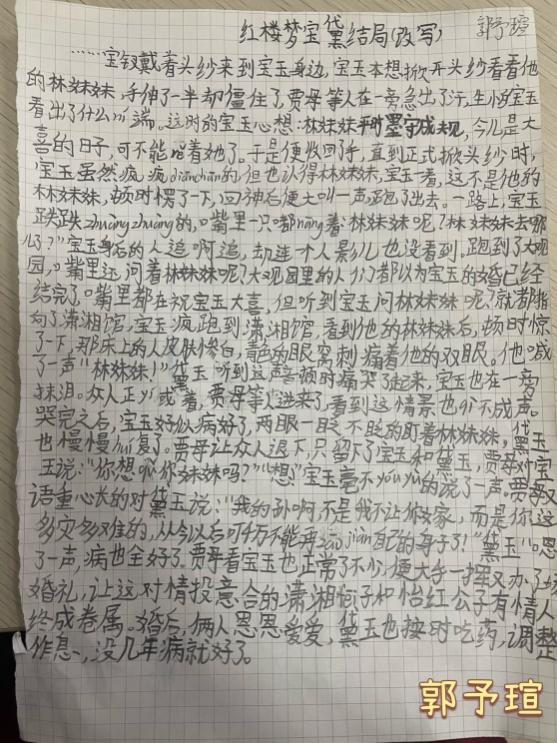 红楼梦宝黛结局(改写) 郭予瑄
……宝钗戴着头纱来到宝玉身边,宝玉本想掀开头纱看看他
的林妹妹,手伸了一半却僵住了,贾母等人在一旁急出了汗,生怕宝玉
看出了什么端。这时的宝玉心想:林妹妹平时墨守成规,今儿是大
喜的日子,可不能惹着她了。于是便收回了手,直到正式掀头纱时,
宝玉虽然疯疯diānchān的,但也认得林妹妹,宝玉一看,这不是他的
林妹妹,顿时愣了下,回神后便大叫一声跑了出去。一路上,宝玉
跌跌zhuàngzhuàng的,嘴里一只嘟nāng着:林妹妹呢?林妹妹去哪
儿了?"宝玉身后的人追啊追,却连个人影儿也没看到。跑到了大观
园,嘴里还问着林妹妹呢?大观园里的人们都以为宝玉的婚已经
结完了,嘴里都在祝宝玉大喜,但听到宝玉问林妹妹呢?就都指
向了潇湘馆,宝玉疯跑到潇湘馆,看到他的林妹妹后,顿时惊
了一下,那床上的人皮肤惨白,青色的眼窝刺痛着他的双眼。他喊
了一声"林妹妹!"黛玉听到这声音顿时痛哭了起来,宝玉也在一旁
抹泪。众人正着,贾母等人进来了,看到这情景也不成声。
哭完之后,宝玉好似病好了,两眼一眨不眨的盯着林妹妹,黛玉
也慢慢恢复了。贾母让众人退下,只留下了宝玉和黛玉,贾母对宝
玉说:"你想娶你妹妹吗?""想!"宝玉毫不yóuyù的说了一声。贾母又
语重心长的对黛玉说:"我的孙啊,不是我不让你家,而是你这
多灾多难的,从今以后可千万不能再jiàn自己的身子了!"黛玉"恩"
了一声,病也全好了。贾母看宝玉也正常了不少,便大手一挥又办了场
婚礼,让这对情投意合的潇湘妃子和怡红公子有情人
终成卷属。婚后,俩人恩恩爱爱,黛玉也按时吃药,调整
作息,没几年病就好了。
郭予瑄